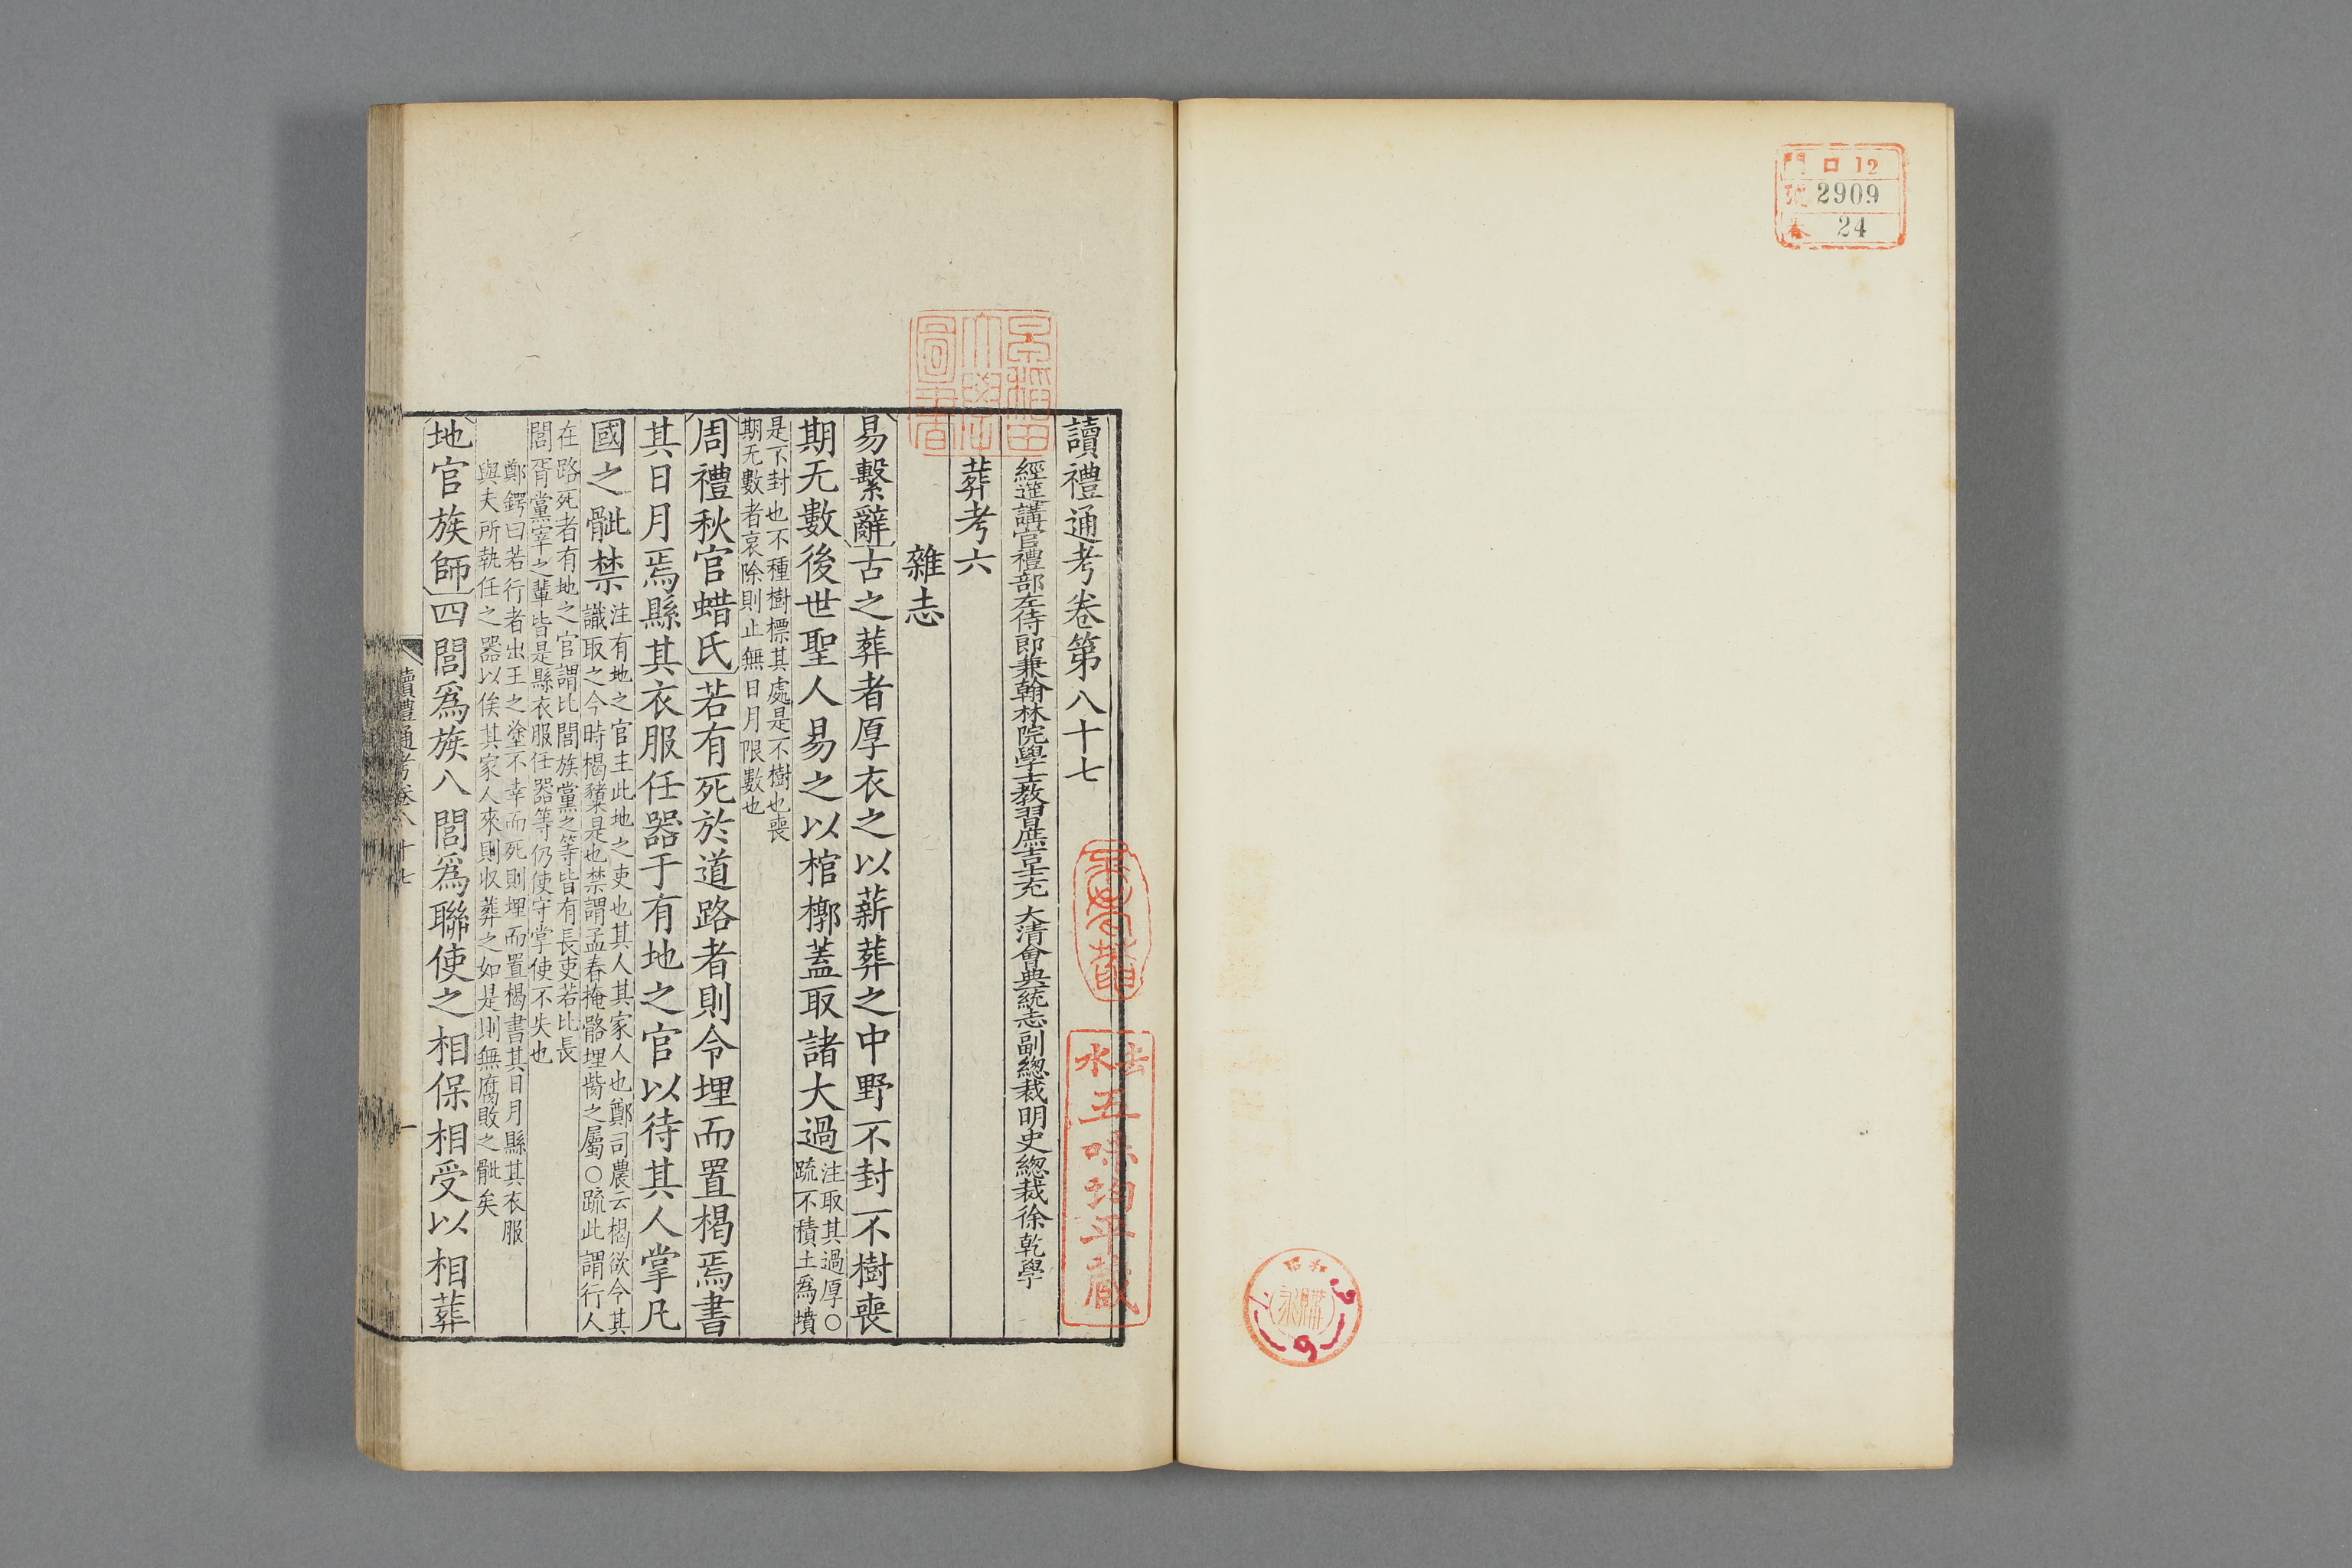 門 ロ 12
號 2909
卷 24
昭和
購求
早稲田
大學
圖書
讀禮通考卷第八十七
經筵講官禮部左侍郎兼翰林院學士教習庶吉士充 大清會典統志副總裁明史總裁徐乾學
葬考六
雜志
易繫辭古之葬者厚衣之以薪葬之中野不封不樹喪
期无數後世聖人易之以棺槨蓋取諸大過注取其過厚○
疏不積土爲墳
是不封也不種樹標其處是不樹也喪
期无數者哀除則止無日月限數也
周禮秋官蜡氏若有死於道路者則令埋而置楬焉書
其日月焉縣其衣服任器于有地之官以待其人掌凡
國之骴禁注有地之官主此地之吏也其人其家人也鄭司農云楬欲令其
識取之今時楬櫫是也禁謂孟春掩骼埋胔之屬○疏此謂行人
在路死者有地之官謂比閭族黨之等皆有長吏若比長
閭胥黨宰之輩皆是縣衣服任器等仍使守掌使不失也
鄭鍔曰若行者出王之塗不幸而死則埋而置楬書其日月縣其衣服
與夫所執任之器以俟其家人來則收葬之如是則無腐敗之骴矣
地官族師四閭爲族八閭爲聯使之相保相受以相葬
讀禮通考卷八十七
一
五味均平藏